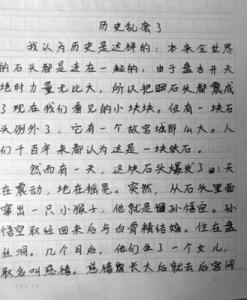 历史乱套了
我认为历史是这样的：本来全世界
的石头都是连在一起的，由于盘古开天
地时力量无比大，所以把石头都震成
了现在我们看见的小块块。但有一块石
头例外了，它有一个故宫城那么大。人
们千百年来都认为这是一块纸石。
然而有一天，这块石头爆发了：天
在震动，地在摇晃。突然，从石头里面
窜出一只小猴子，他就是孙悟空。孙
悟空取经回来后与白骨精结婚。住在盘
丝洞。几个月后，他们生了一个女儿，
取名叫慈禧。慈禧长大后就去后宫闹